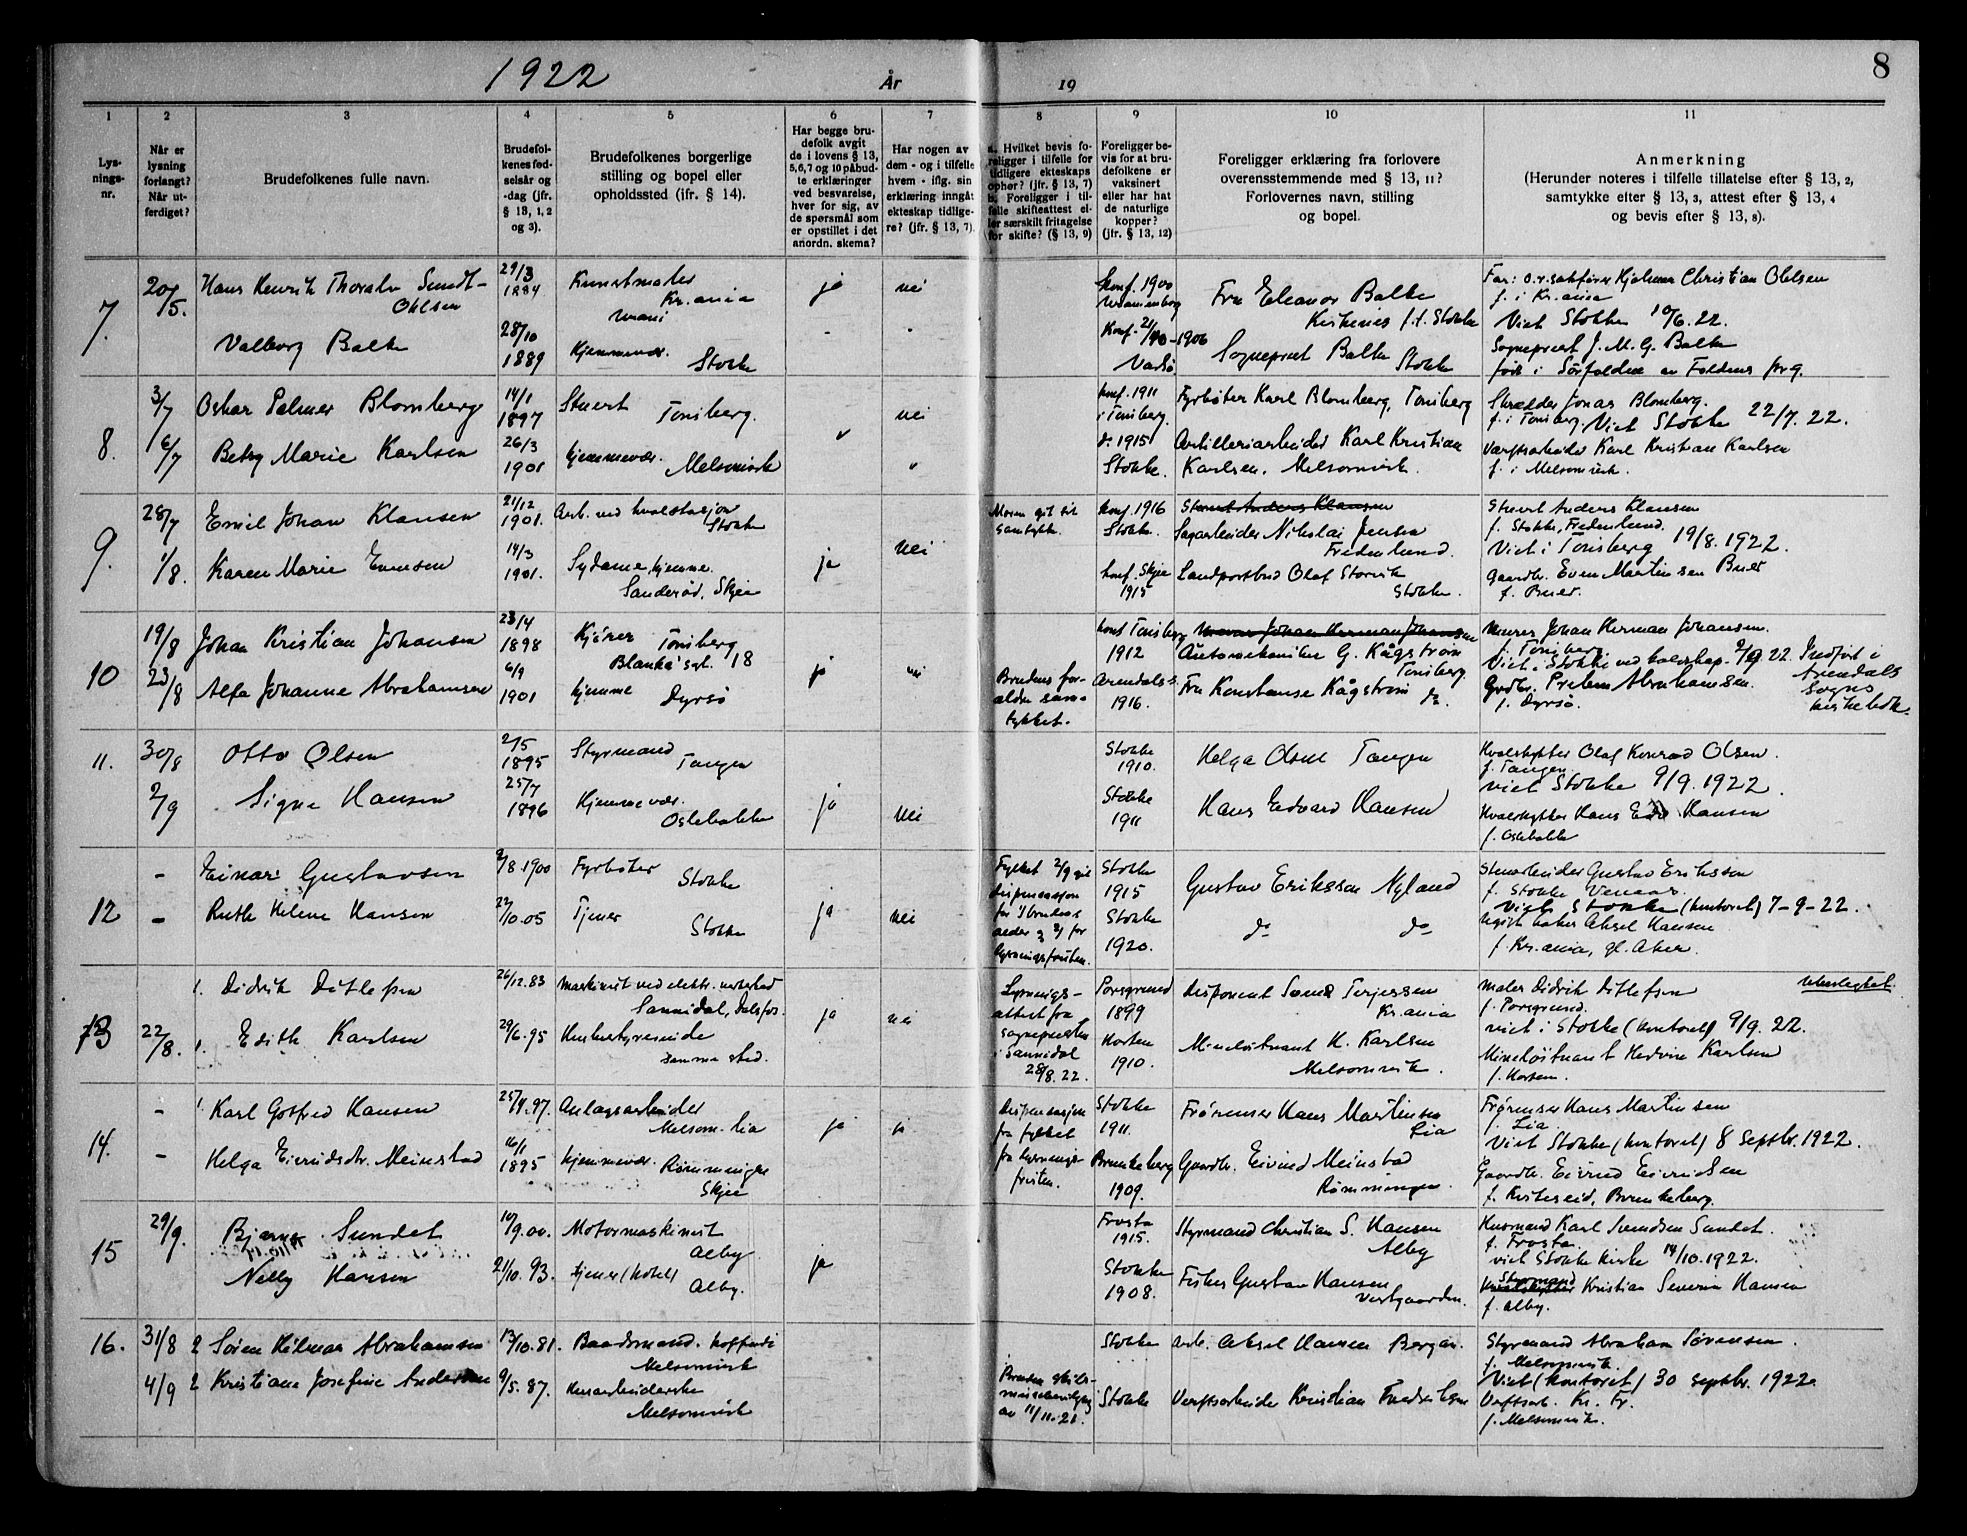 1922
År
19
8
1
2
3
4
5
6
7
8
9
10
11
Lys-
nings-
nr.
Når er
lysning
forlangt?
Når ut-
ferdiget?
Brudefolkenes fulle navn.
Brudefol-
kenes fød-
selsår og
-dag (jfr.
§ 13, 1, 2
og 3).
Brudefolkenes borgerlige
stilling og bopel eller
opholdssted (ifr. § 14).
Har begge bru-
defolk avgit
de i lovens § 13,
5,6,7 og 10 påbud-
te erklæringer
ved besvarelse,
hver for sig, av
de spørsmål som
er opstillet i det
anordn. skema?
Har nogen av
dem - og i tilfelle
hvem - iflg. sin
erklæring inngåt
ekteskap tidlige-
re? (jfr. § 13, 7).
a. Hvilket bevis fo-
religger i tilfelle for
tidligere ekteskaps
ophør? (jfr. § 13, 7)
b. Foreligger i til-
felle skifteattest el-
ler særskilt fritagelse
for skifte? (§ 13, 9)
Foreligger be-
vis for at bru-
defolkene er
vaksinert
eller har hat
de naturlige
kopper?
(jfr. § 13, 12)
Foreligger erklæring fra forlovere
overensstemmende med § 13, 11?
Forlovernes navn, stilling
og bopel.
Anmerkning
(Herunder noteres i tilfelle tillatelse efter § 13, 2,
samtykke efter § 13, 3, attest efter § 13, 4
og bevis efter § 13, 8).
7.
20/5.
Hans Henrik Thoralv Sundt-
Ohlsen
29/3
1884
Kunstmaler
Kr.ania
ja
nei
Konf. 1900
Uranienborg
Fru Eleanor Balke
Kirkenes f.t. Stokke
Far: o.r.sakfører Hjalmar Christian Ohlsen
f. i Kr.ania
Viet Stokke 10/6.22.
Valborg Balke
28/10
1889
Hjemmevær.
Stokke
Konf. 21/10-1906
Vadsø
Sogneprest Balke Stokke
Sogneprest J. M. G. Balke
født i Sørfolden av Foldens prg.
8.
3/7
Oskar Palmer Blomberg
14/1
1897
Stuert
Tønsberg.
nei
konf. 1911
i Tønsberg.
Fyrbøter Karl Blomberg, Tønsberg
Skrædder Jonas Blomberg.
f. i Tønsberg. Viet Stokke 22/7. 22.
6/7
Betsy Marie Karlsen
26/3
1901
hjemmevær.
Melsomvik
d. 1915
Stokke.
Artilleriarbeider Karl Kristian
Karlsen, Melsomvik.
Værftsarbeider Karl Kristian Karlsen
f. i Melsomvik.
9.
28/7
Emil Johan Klausen
21/12
1901.
Arb. ved hvalstasjon
Stokke
Moren git sit
samtykke
konf. 1916
Stokke.
Stuert Anders Klausen
Sagarbeider Nikolai Jensen
Fredenlund.
Stuert Anders Klausen
f. Stokke, Fredenlund.
Viet i Tønsberg 19/8. 1922.
1/8.
Karen Marie Evensen
14/3
1901.
Sydame, hjemme.
Sanderød, Skjee
ja
nei
konf. Skjee
1915
Landpostbud Olaf Storvik
Stokke.
Gaardbr. Even Martinsen Buer
f. Buer.
10
19/8
Johan Kristian Johansen
23/4
1898
Kjører Tønsberg
18
konf Tønsberg
1912
Murer Johan Herman Johansen
Automekaniker G. Kågstrøm
Tønsberg.
Murer Johan Herman Johansen.
f. Tønsberg.
Viet i Stokke ved borgerskap. 2/9 22. Indført i
Arendals
Sogns
kirkebok.
23/8
Alfa Johanne Abrahamsen
6/9
1901
hjemme
Dyrsø
ja
nei
Brudens for-
eldre sam-
tykket.
Arendal
1916.
Fru Konstanse Kågstrøm do.
Grdbr. Preben Abrahamsen.
f. Dyrsø.
11.
30/8
Otto Olsen
2/5
1895
Styrmand
Tangen
Stokke
1910.
Helga Olsen Tangen
Hvalskytter Olaf Konrad Olsen.
f. Tangen
viet Stokke 9/9. 1922.
2/9
Signe Hansen
25/7
1896
Hjemmevær.
Oslebakke
ja
nei
Stokke
1911
Hans Edvard Hansen
Hvalskytter Hans Edv Hansen
f. Oslebakke
12
-
Einar Gustavsen
2/8.1900
Fyrbøter
Stokke
Fylket 2/9 git
dispensasjon
for brudens
alder og for
lysningsfristen.
Stokke
1915
Gustav Eriksson Nyland
Stenarbeider Gustav Eriksson
f. Stokke
Viet Stokke (kontoret) 7-9-22.
-
Ruth Helene Hansen
22/10.05
Tjener
Stokke
ja
nei
Stokke
1920.
do do
Ugift baker Aksel Hansen
f. Kr.ania, gl. Aker.
13
1. Didrik Ditlefsen
26/12.83
Maskinist ved elektr. verksted
Sannidal, Dalsfos.
ja
nei
Lysnings-
attest fra
sognepresten
i Sannidal
28/8. 22.
Porsgrund
1899
Disponent Terjessen
Kr.ania
Maler Didrik Ditlefsen
f. Porsgrund.
viet i Stokke (kontoret) 9/9. 22.
22/8.
1. Edith Karlsen
29/6.95
Husbestyrerinde
samme sted.
Horten
1910.
Mineløitnant H. Karlsen
Melsomvik.
Mineløitnant Hedvin Karlsen
f. Horten.
14.
-
1. Karl Gotfred Hansen
25/4.97.
Anlægsarbeider
Melsom-Lia
ja
Dispensasjon
fra fylket
fra lysnings-
fristen.
Stokke
1911.
Frørenser Hans Martinsen
Lia
Frørenser Hans Martinsen
f. Lia
Viet Stokke (kontoret) 8 Septbr. 1922.
-
Helga Eivindsdtr. Meinstad
16/1
1895
hjemmevær. Rømmingen
Skjee
Brunkeberg
1909.
Gaardbr. Eivind Meinstad
Rømmingen.
Gaardbr. Eivind Eivindsen
f. Kviteseid, Brunkeberg.
15
29/9.
Bjarne Sundet
10/9.00.
Motormaskinist
Alby
Frosta
1915.
Styrmand Christian S. Hansen
Alby
Husmand Karl Svendsen Sundet.
f. Frosta.
viet Stokke kirke 14/10.1922.
Nelly Hansen
21/10. 93.
tjener (hotel)
Alby.
ja
Stokke
1908.
Fisker Gustav Hansen
Vestgaarden.
Styrmand
Hvalskytter Kristian Severin Hansen
f. Alby.
16.
31/8
2 Søren Hilmar Abrahamsen
13/10.81.
Baadsmand.
Melsomvik
Stokke
arb. Aksel Hansen Bergan.
Styrmand Abraham Sørensen.
f. Melsomvik.
Viet (kontoret) 30 septbr. 1922.
4/9
2 Kristiane Josefine Andersen
9/5.87.
Husarbeiderske
Melsomvik
Bruden skils-
missebevilgning
av 11/11.21.
Stokke
Verftsarbeider Kristian
Verftsarb. Kr. Fr.
f. Melsomvik.